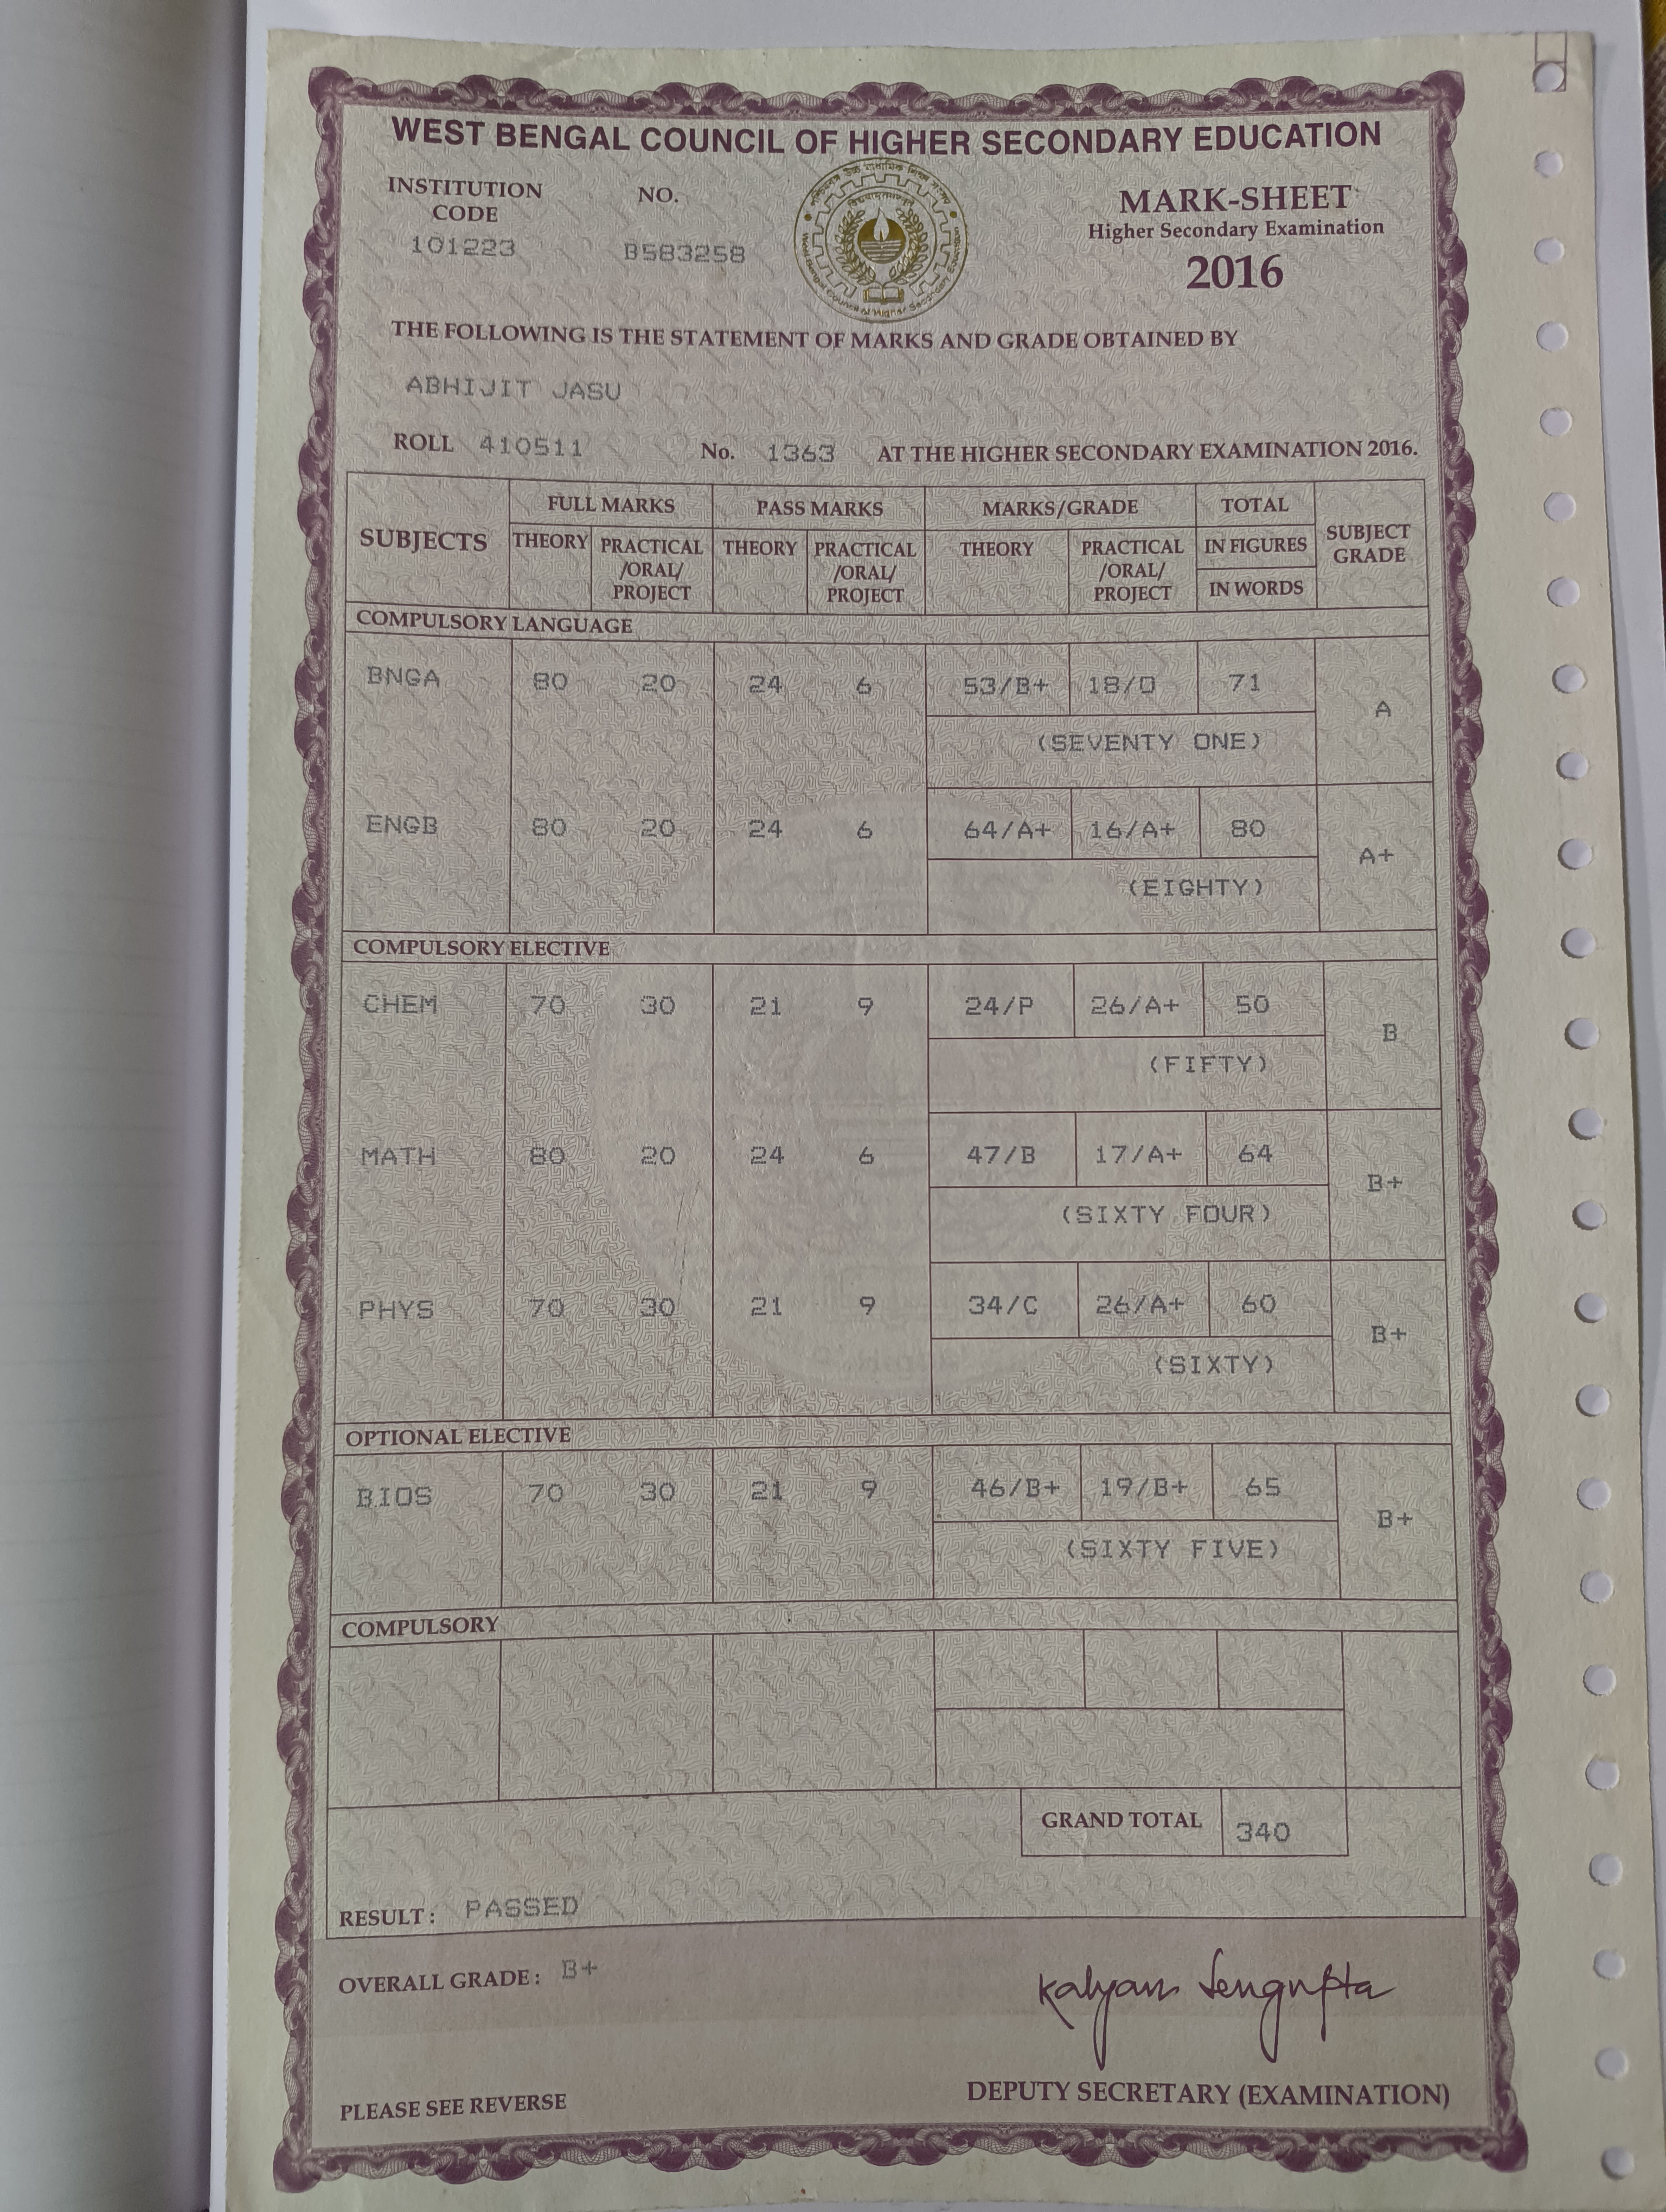 WEST BENGAL COUNCIL OF HIGHER SECONDARY EDUCATION
INSTITUTION CODE NO.
101223 B583258
MARK-SHEET
Higher Secondary Examination
2016
THE FOLLOWING IS THE STATEMENT OF MARKS AND GRADE OBTAINED BY
ABHIJIT JASU
ROLL 410511 No. 1363 AT THE HIGHER SECONDARY EXAMINATION 2016.
SUBJECTS FULL MARKS PASS MARKS MARKS/GRADE TOTAL SUBJECT GRADE
THEORY PRACTICAL /ORAL/ PROJECT THEORY PRACTICAL /ORAL/ PROJECT THEORY PRACTICAL /ORAL/ PROJECT IN FIGURES
IN WORDS
COMPULSORY LANGUAGE
BNGA 80 20 24 6 53/B+ 18/O 71 A
(SEVENTY ONE)
ENGB 80 20 24 6 64/A+ 16/A+ 80 A+
(EIGHTY)
COMPULSORY ELECTIVE
CHEM 70 30 21 9 24/P 26/A+ 50 B
(FIFTY)
MATH 80 20 24 6 47/B 17/A+ 64 B+
(SIXTY FOUR)
PHYS 70 30 21 9 34/C 26/A+ 60 B+
(SIXTY)
OPTIONAL ELECTIVE
BIOS 70 30 21 9 46/B+ 19/B+ 65 B+
(SIXTY FIVE)
COMPULSORY
GRAND TOTAL 340
RESULT : PASSED
OVERALL GRADE : B+
Kalyan Sengupta
PLEASE SEE REVERSE
DEPUTY SECRETARY (EXAMINATION)